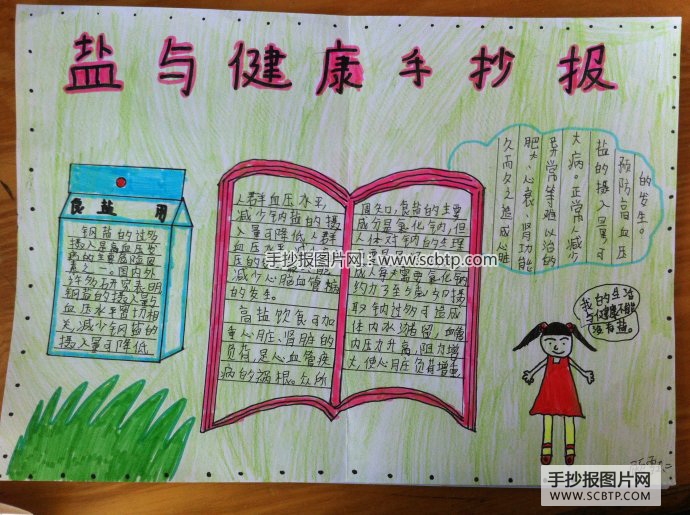 盐与健康手抄报
食盐用
钠盐的过多
摄入是高血压发
病的主要危险因
素之一。国内外
许多研究表明
钠盐的摄入量与
血压水平密切相
关,减少钠盐的
摄入量可降低
人群血压水平,
减少钠盐的摄
入量可降低人群
血压水
压的
减少心脑血管病
的发生。
高盐饮食可加
重心脏、肾脏的
负荷,是心血管疾
病的祸根。众所
周知,食盐的主要
成分是氯化钠,但
人体对钠的生理
成人每天需要氯化钠
约为了至5克。如摄
取钠过多可造成
体内水潴留,血管
内压力升高,阻力增
大,使心脏负荷增重,
久而久之造成心脏
肥大、心衰、肾功能
异常等难以治的
大病。正常人减少
盐的摄入量可
预防高血压
的发生。
我的生活
与健康不能
没有盐。
手抄报图片网.com
www.scbtp.com
手抄报图片网
WWW.SCBTP.COM